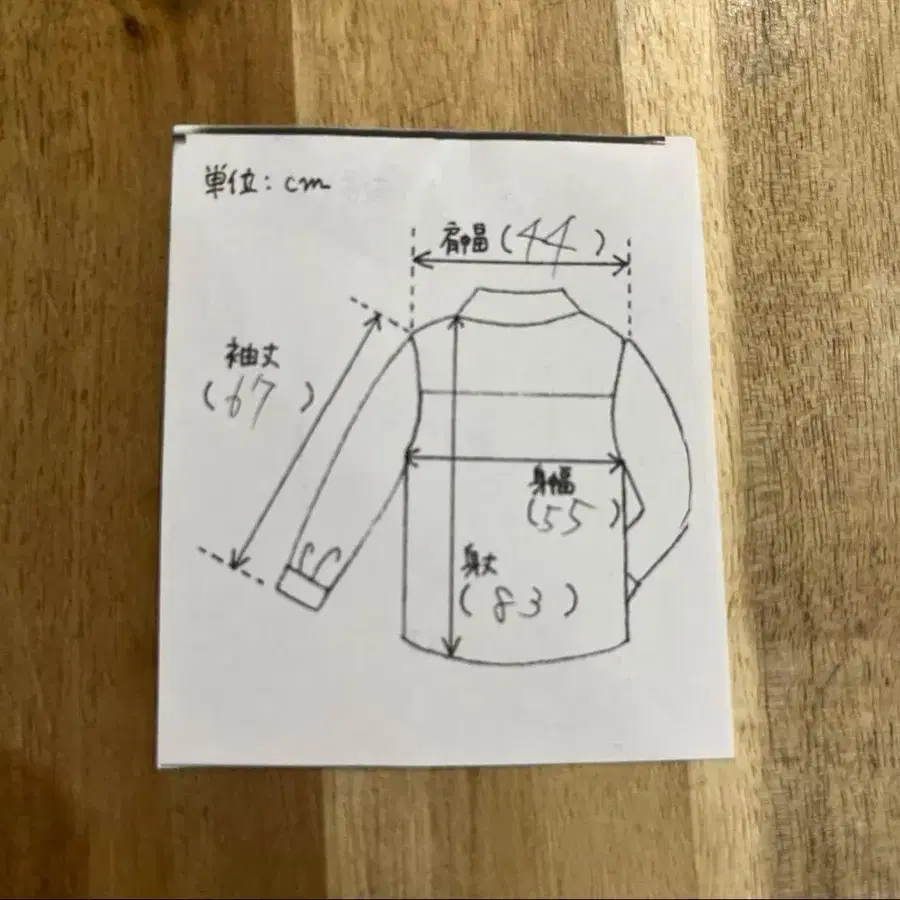 単位：cm
肩幅(44)
袖丈
(67)
身幅
(55)
身丈
(83)